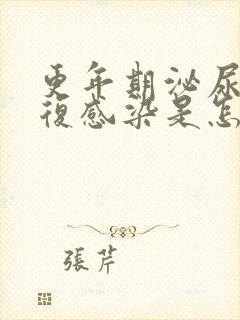 更年期泌尿
復感染是怎
張芹